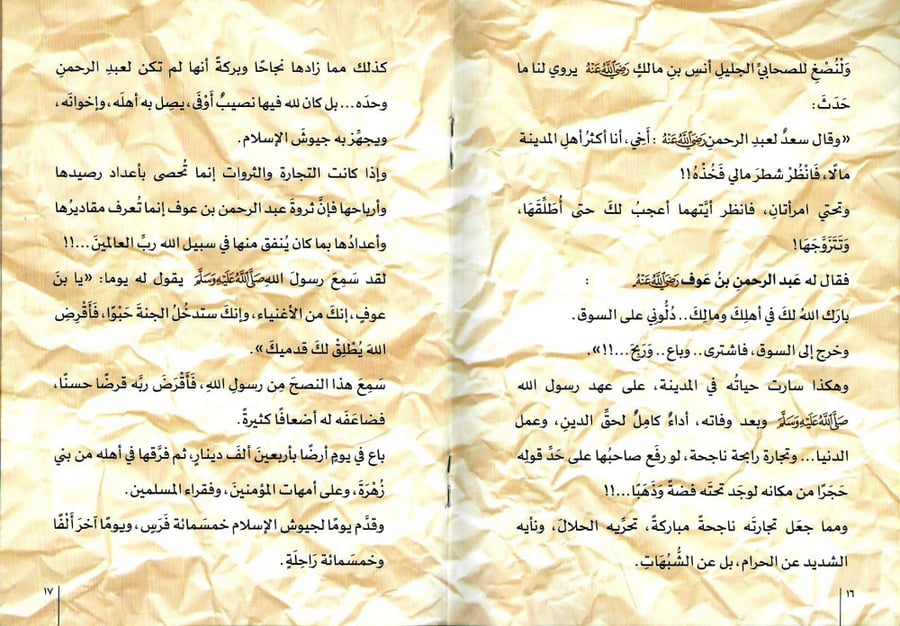 وَلْنُصْغِ للصحابيِّ الجليلِ أنسِ بنِ مالكٍ رَضِيَ اللَّهُ عَنْهُ يروي لنا ما
حَدَثَ:
«وقال سعدٌ لعبدِ الرحمنِ رَضِيَ اللَّهُ عَنْهُ : أَخِي، أنا أكثرُ أهلِ المدينة
مالًا، فَانْظُرْ شطرَ مالي فَخُذْهُ!!
وتحتي امرأتانِ، فانظر أيَّتهما أعجبُ لكَ حتى أُطَلِّقَهَا،
وَتَتَزَوَّجَهَا!
فقال له عَبد الرحمنِ بنُ عَوف رَضِيَ اللَّهُ عَنْهُ :
بارَك اللهُ لكَ في أهلِكَ ومالِكَ.. دُلُّونِي على السوق.
وخرج إلى السوق، فاشترى.. وباع.. وَرَبِحَ...!!».
وهكذا سارت حياتُه في المدينة، على عهد رسول الله
صَلَّى اللَّهُ عَلَيْهِ وَسَلَّمَ وبعد وفاته، أداءٌ كامِلٌ لحقِّ الدينِ، وعمل
الدنيا... وتجارة رابحة ناجحة، لو رفَع صاحبُها على حَدِّ قولِه
حَجَرًا من مكانه لوجَد تحتَه فضةً وَذَهَبًا...!!
ومما جعَل تجارتَه ناجحةً مباركةً، تحرِّيه الحلالَ، ونأيه
الشديد عن الحرام، بل عن الشُّبُهَاتِ.
١٦
كذلك مما زادها نجاحًا وبركةً أنها لم تكن لعبدِ الرحمنِ
وحدَه... بل كان لله فيها نصيبٌ أَوْفَى، يصِل به أهلَه، وإخوانَه،
ويجهِّز به جيوشَ الإسلام.
وإذا كانت التجارة والثروات إنما تُحصى بأعداد رصيدها
وأرباحها فإنَّ ثروةَ عبد الرحمن بن عوف إنما تُعرف مقاديرُها
وأعدادُها بما كان يُنفق منها في سبيل الله ربِّ العالمينَ...!!
لقد سَمِعَ رسولَ اللهِ صَلَّى اللَّهُ عَلَيْهِ وَسَلَّمَ يقول له يوما: «يا بنَ
عوفٍ، إنكَ من الأغنياء، وإنكَ ستدخُلُ الجنةَ حَبْوًا، فَأَقْرِضِ
اللهَ يُطْلِقْ لكَ قدميكَ».
سَمِعَ هذا النصحَ مِن رسولِ اللهِ، فَأَقْرَضَ ربَّه قرضًا حسنًا،
فضاعَفَه له أضعافًا كثيرةً.
باع في يومٍ أرضًا بأربعينَ ألفَ دينارٍ، ثم فرَّقها في أهله من بني
زُهْرَةَ، وعلى أمهات المؤمنينَ، وفقراء المسلمين.
وقدَّم يومًا لجيوشِ الإسلام خمسَمائة فَرَسٍ، ويومًا آخرَ أَلْفًا
وخمسَمائة رَاحِلَةٍ.
١٧